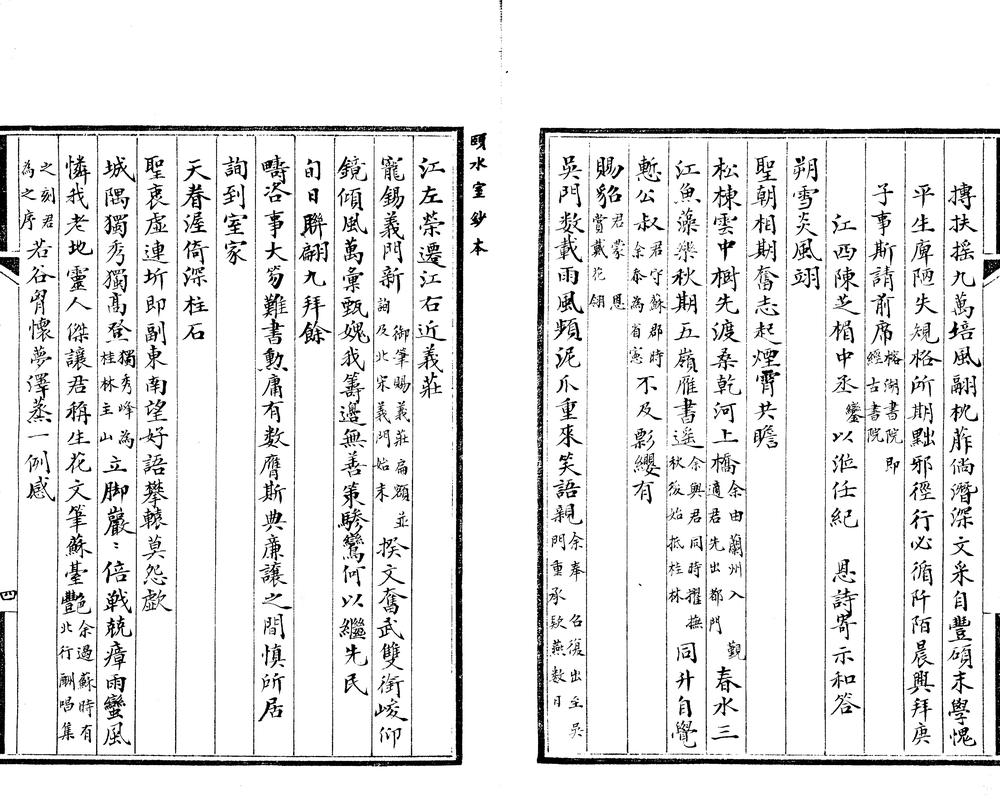 摶扶搖九萬培風翮枕胙倘潛深文采自豐碩末學愧
平生庳陋失規格所期黜邪徑行必循阡陌晨興拜庚
子事斯請前席榕湖書院即經古書院
江西陳芝楣中丞鑾以涖任紀 恩詩寄示和答
朔雪炎風翊
聖朝相期奮志起煙霄共瞻
松棟雲中樹先渡桑乾河上橋余由蘭州入 覲適君先出都門春水三
江魚藻樂秋期五嶺雁書遙余與君同時擢撫秋後始抵桂林同升自覺
慙公叔君守蘇郡時余忝為省憲不及影纓有
賜貂君蒙 恩賞戴花翎
吳門数載雨風頻泥爪重來笑語親余奉 召復出至吳門重承欵燕数日
頤水室鈔本
江左榮遷江右近義莊
寵錫義門新 御筆賜義莊扁額並詢及北宋義門始末揆文奮武雙銜峻仰
鏡傾風萬彙甄媿我籌邊無善策驂鸞何以繼先民
旬日聯翩九拜餘
疇咨事大荔難書勲庸有数膺斯典廉讓之間慎所居
詢到室家
天眷渥倚深柱石
聖衷虛連圻即副東南望好語攀轅莫怨歔
城隅獨秀獨髙登獨秀峰為桂林主山立脚巖〻倍戰兢瘴雨蠻風
憐我老地靈人傑讓君稱生花文筆蘇臺艷余過蘇時有北行酬唱集
之刻君為之序若谷胷懷夢澤蒸一例感
四